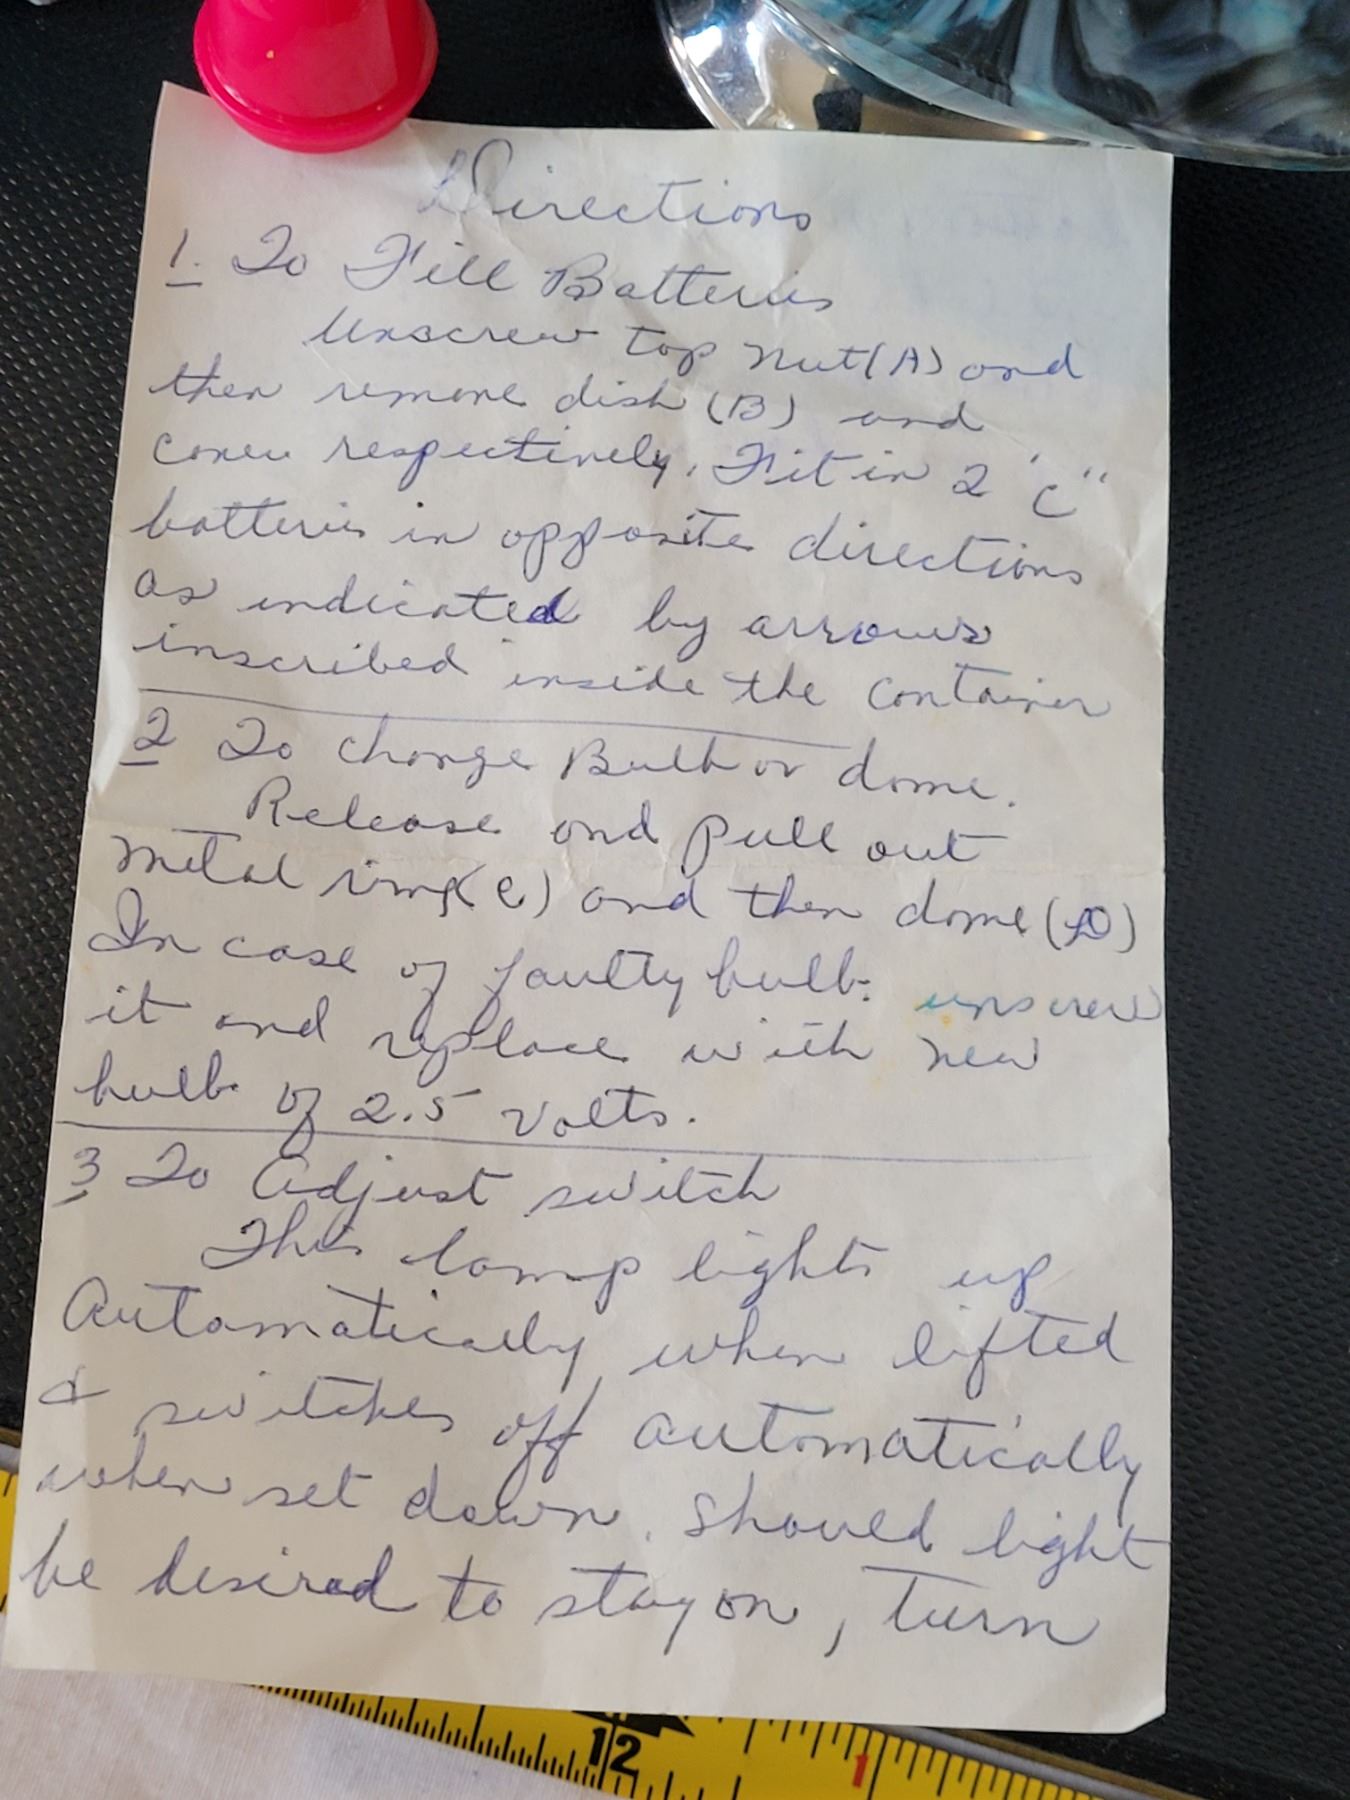 Directions
1. To Fill Batteries
Unscrew top nut (A) and
then remove dish (B) and
cover respectively. Fit in 2 "C"
batteries in opposite directions
as indicated by arrows
inscribed inside the container
2 To change Bulb or dome.
Release and pull out
metal ring (C) and then dome (D)
In case of faulty bulb: unscrew
it and replace with new
bulb of 2.5 volts.
3 To Adjust switch
This lamp lights up
Automatically when lifted
& switches off automatically
when set down. Should light
be desired to stay on, turn
12
1